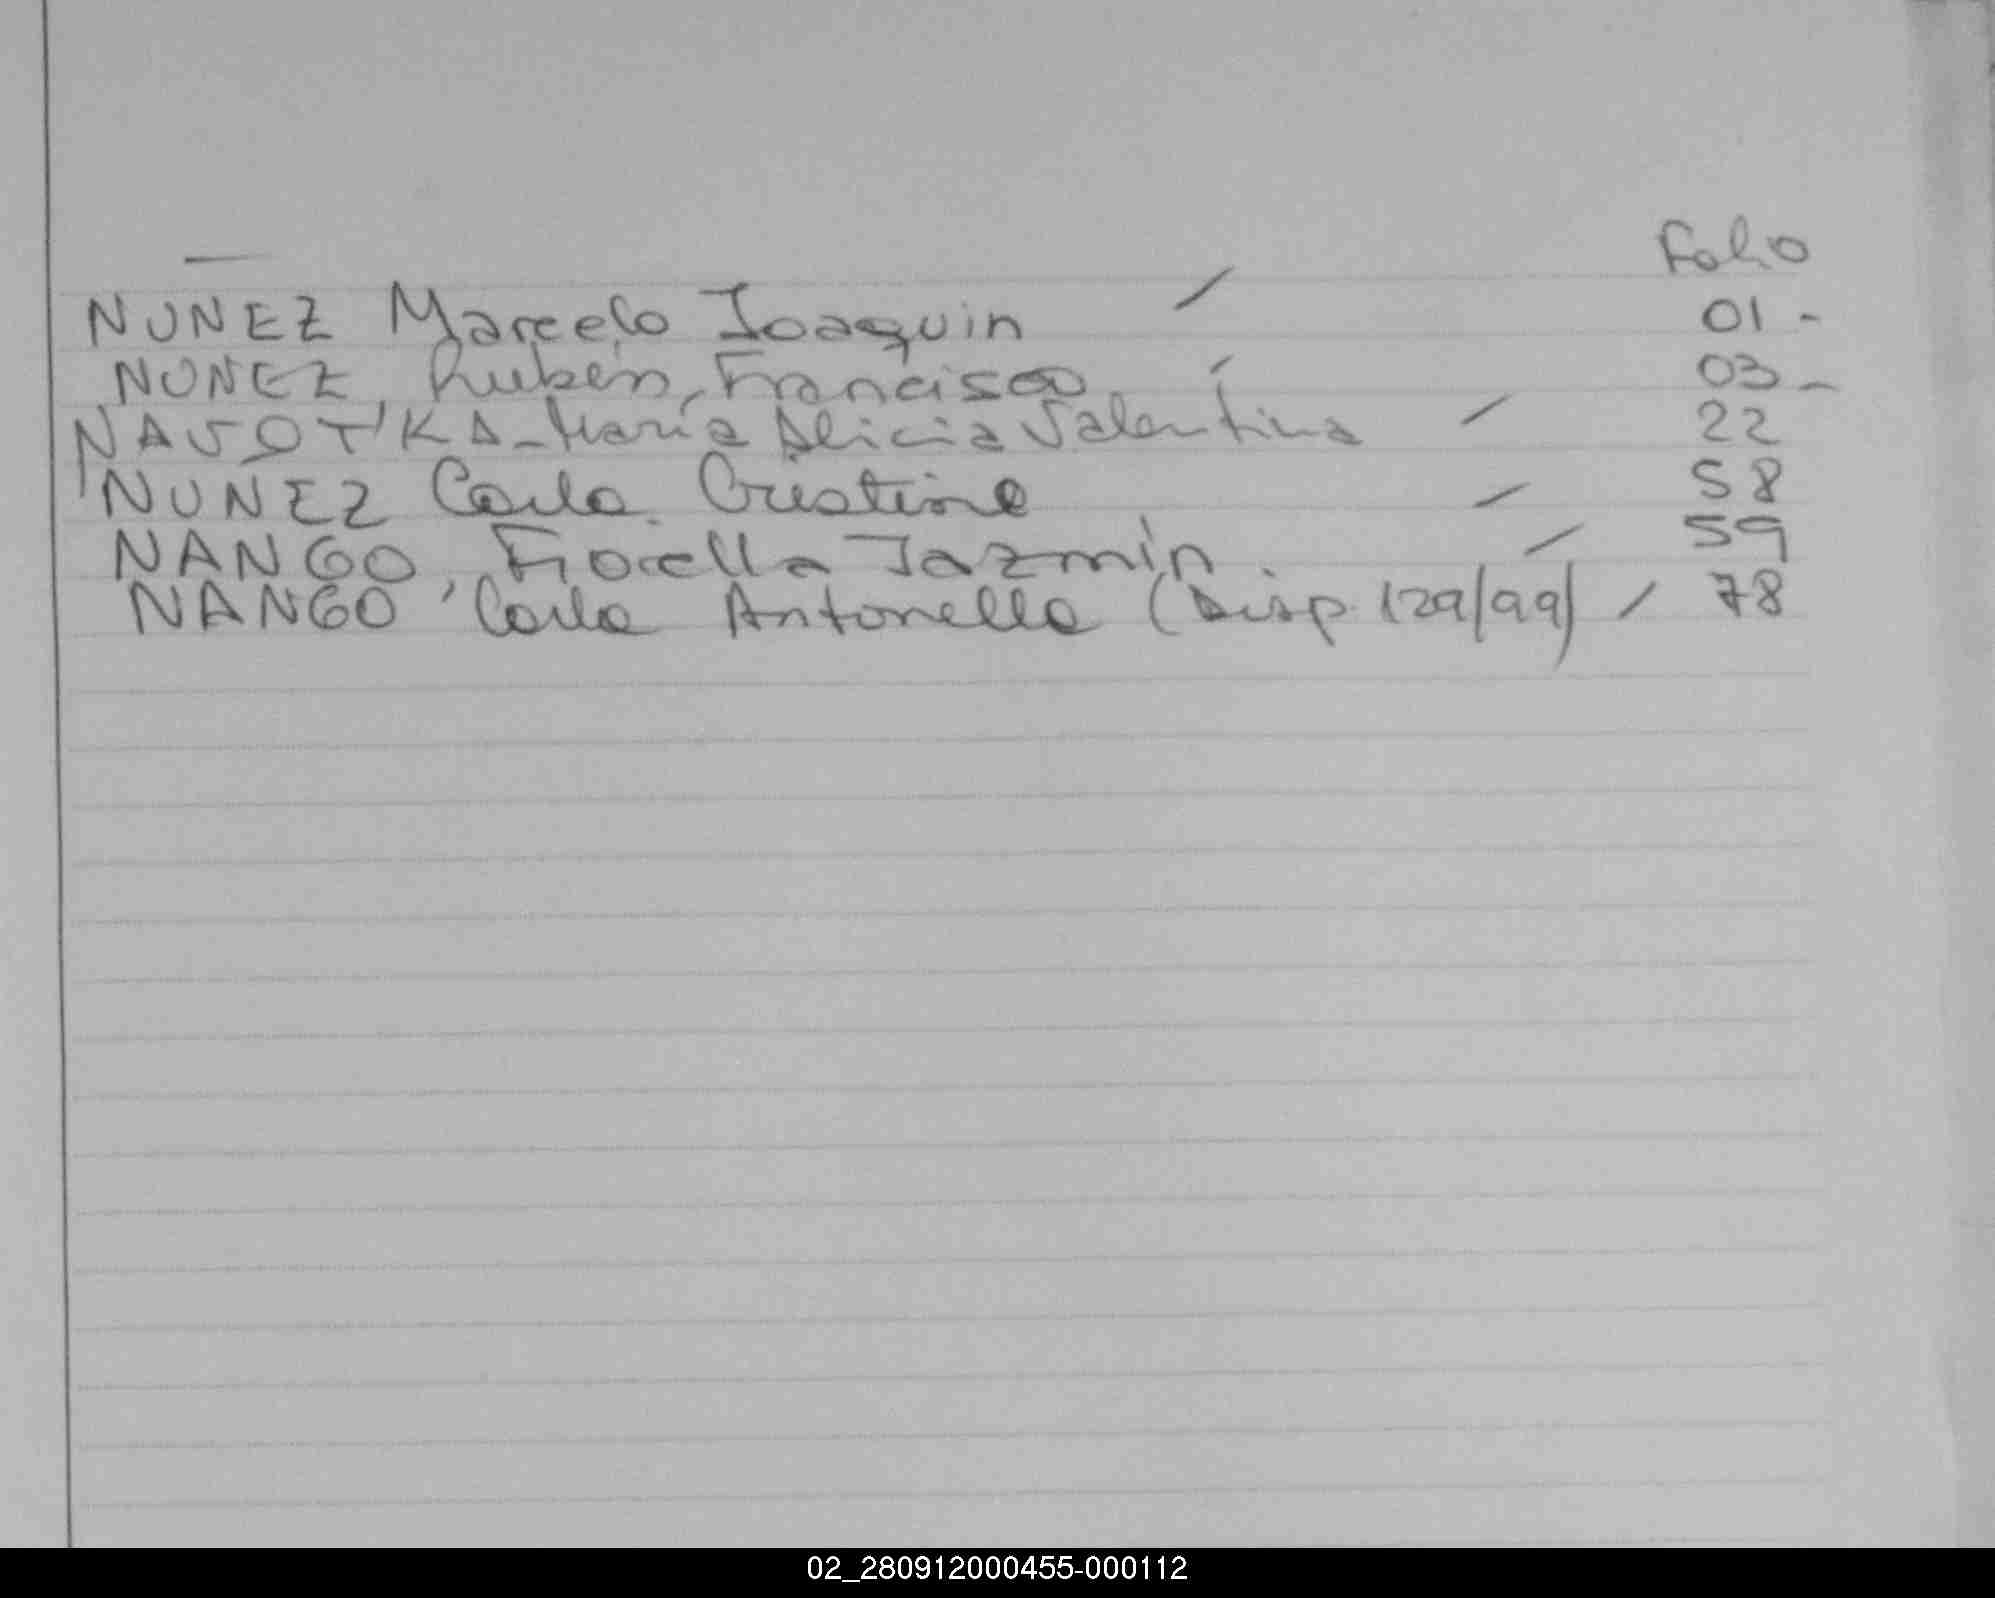 Folio
NUÑEZ Marcelo Joaquin / 01 -
NUNEZ, Rubén, Francisco / 03 -
NAVOTKA - María Alicia Valentina / 22
NUNEZ Carla Cristina / 58
NANGO, Fiorella Jazmín / 59
NANGO, Carla Antonella (Disp. 129/99) / 78
02_280912000455-000112